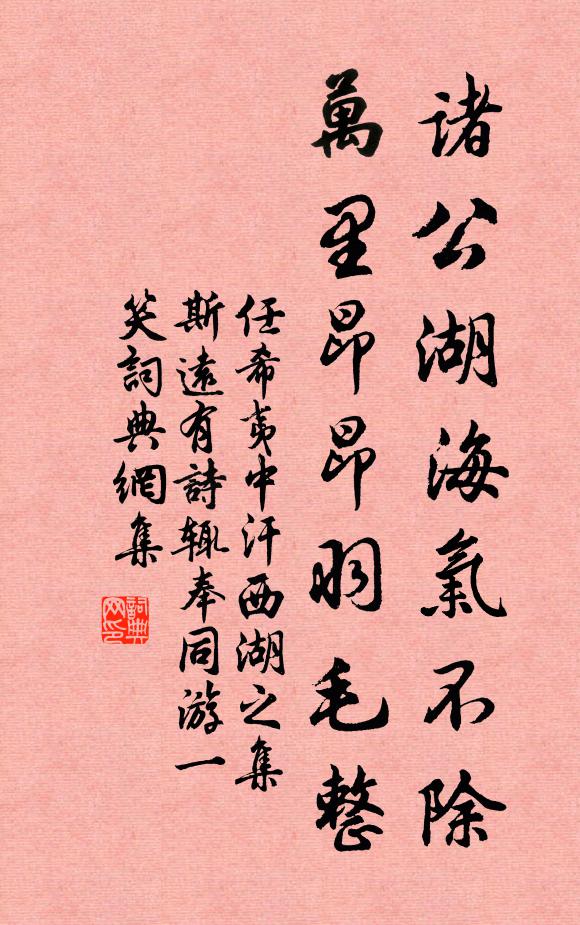 諸公湖海氣不除
萬里昂昂羽毛整
任希夷中汗西湖之集
斯遠有詩輒奉同游一
笑詞典網集
詞典
网印